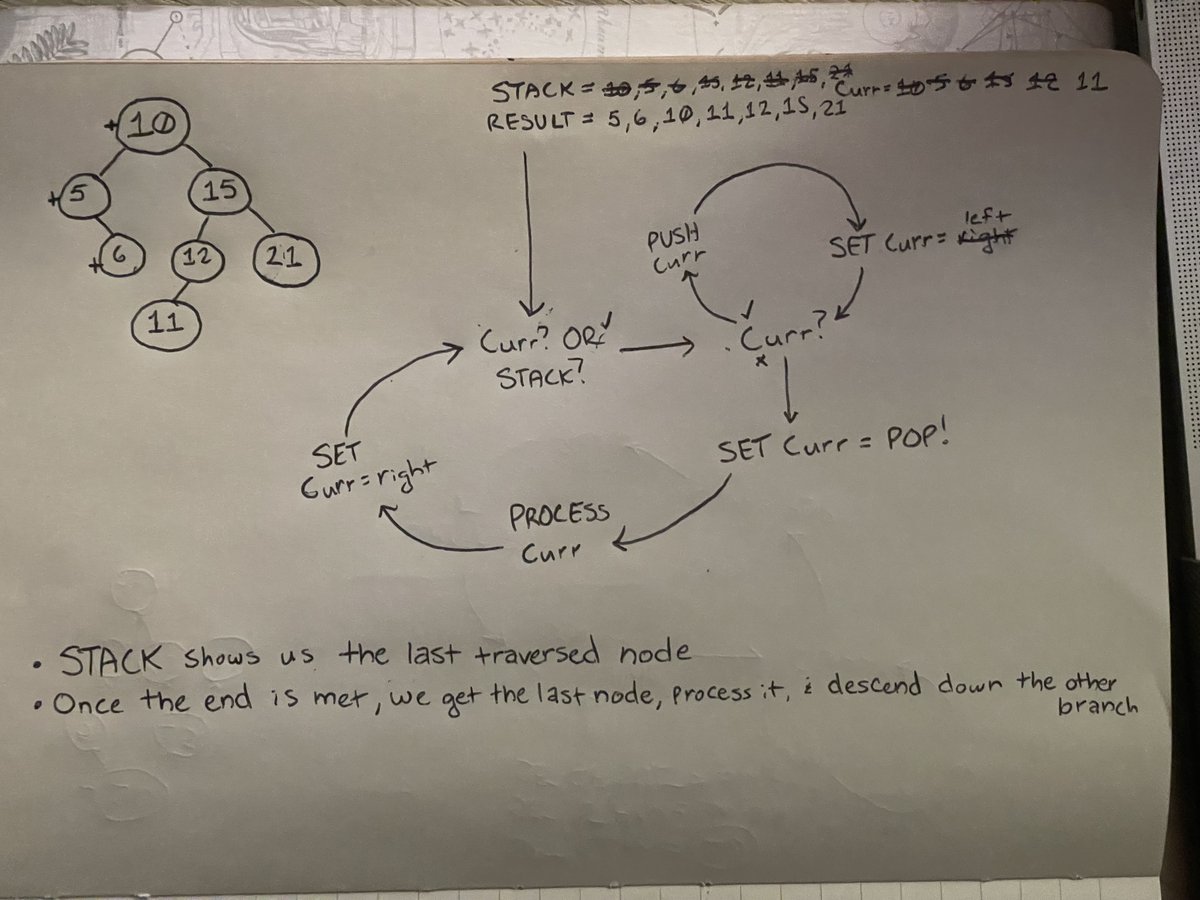 STACK = 10, 5, 6, 15, 12, 11, 15, 21
Curr = 10 5 6 15 12 11
RESULT = 5, 6, 10, 11, 12, 15, 21
+10
+5
15
+6
12
21
11
PUSH
Curr
left
SET Curr = right
Curr? OR
STACK?
Curr?
x
SET Curr = POP!
SET
Curr = right
PROCESS
Curr
• STACK shows us the last traversed node
• Once the end is met, we get the last node, process it, & descend down the other
branch